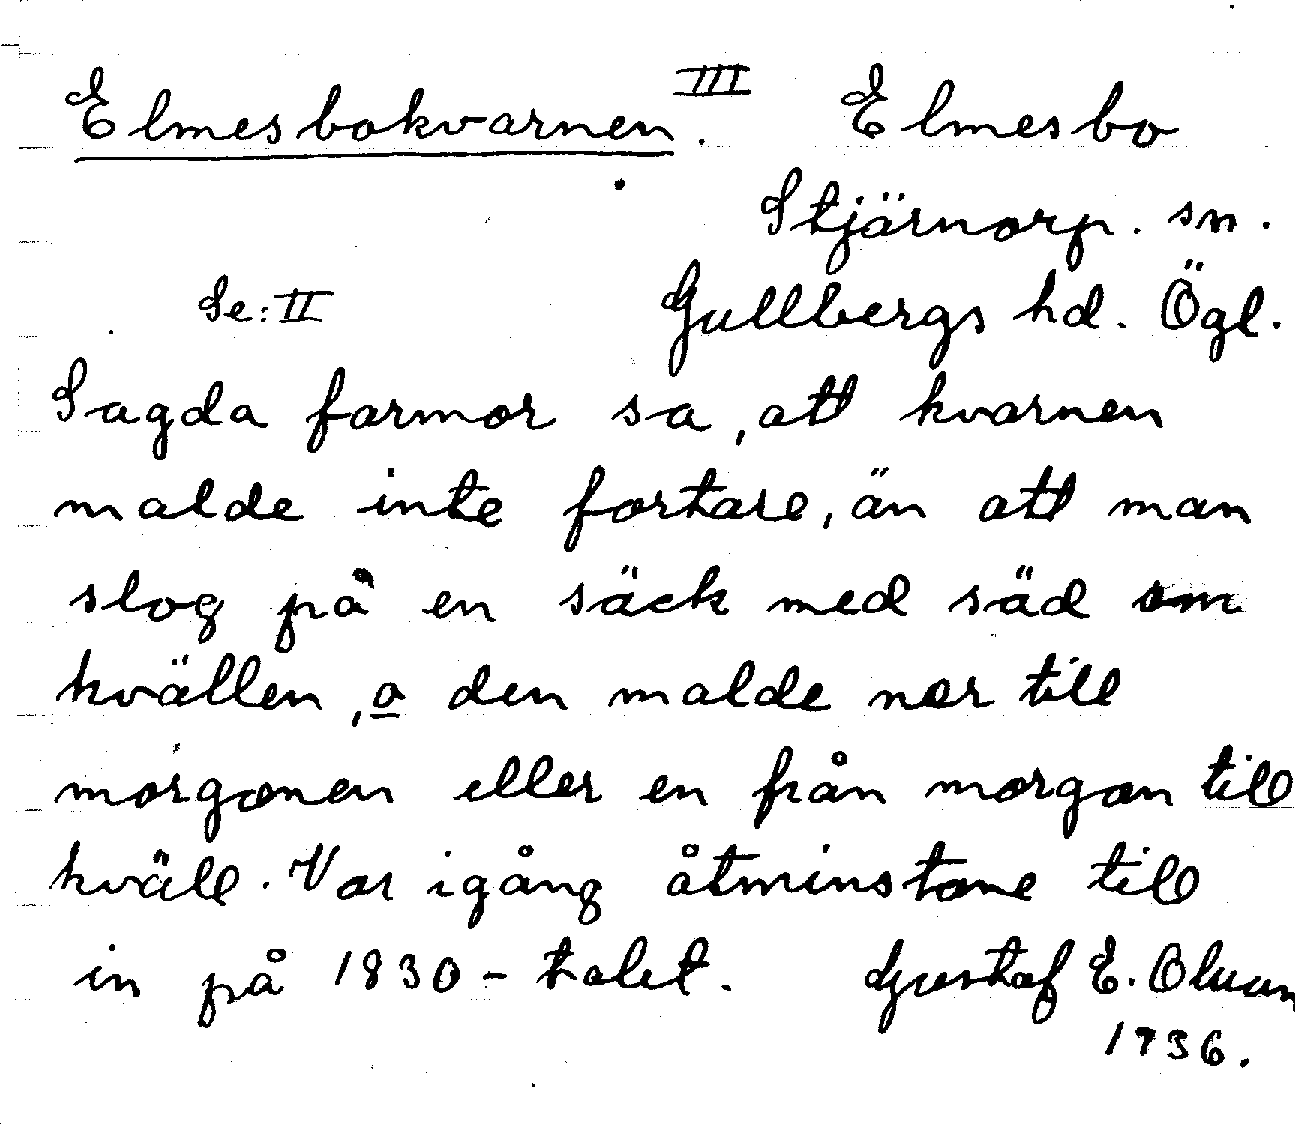 Elmesbokvarnen. III Elmesbo
Stjärnorp. sn.
Se: II Gullbergs hd. Ögl.
Sagda farmor sa, att kvarnen
malde inte fortare, än att man
slog på en säck med säd om
kvällen, o den malde ner till
morgonen eller en från morgon till
kväll. Var igång åtminstone till
in på 1830-talet. Gustaf E.
1936.